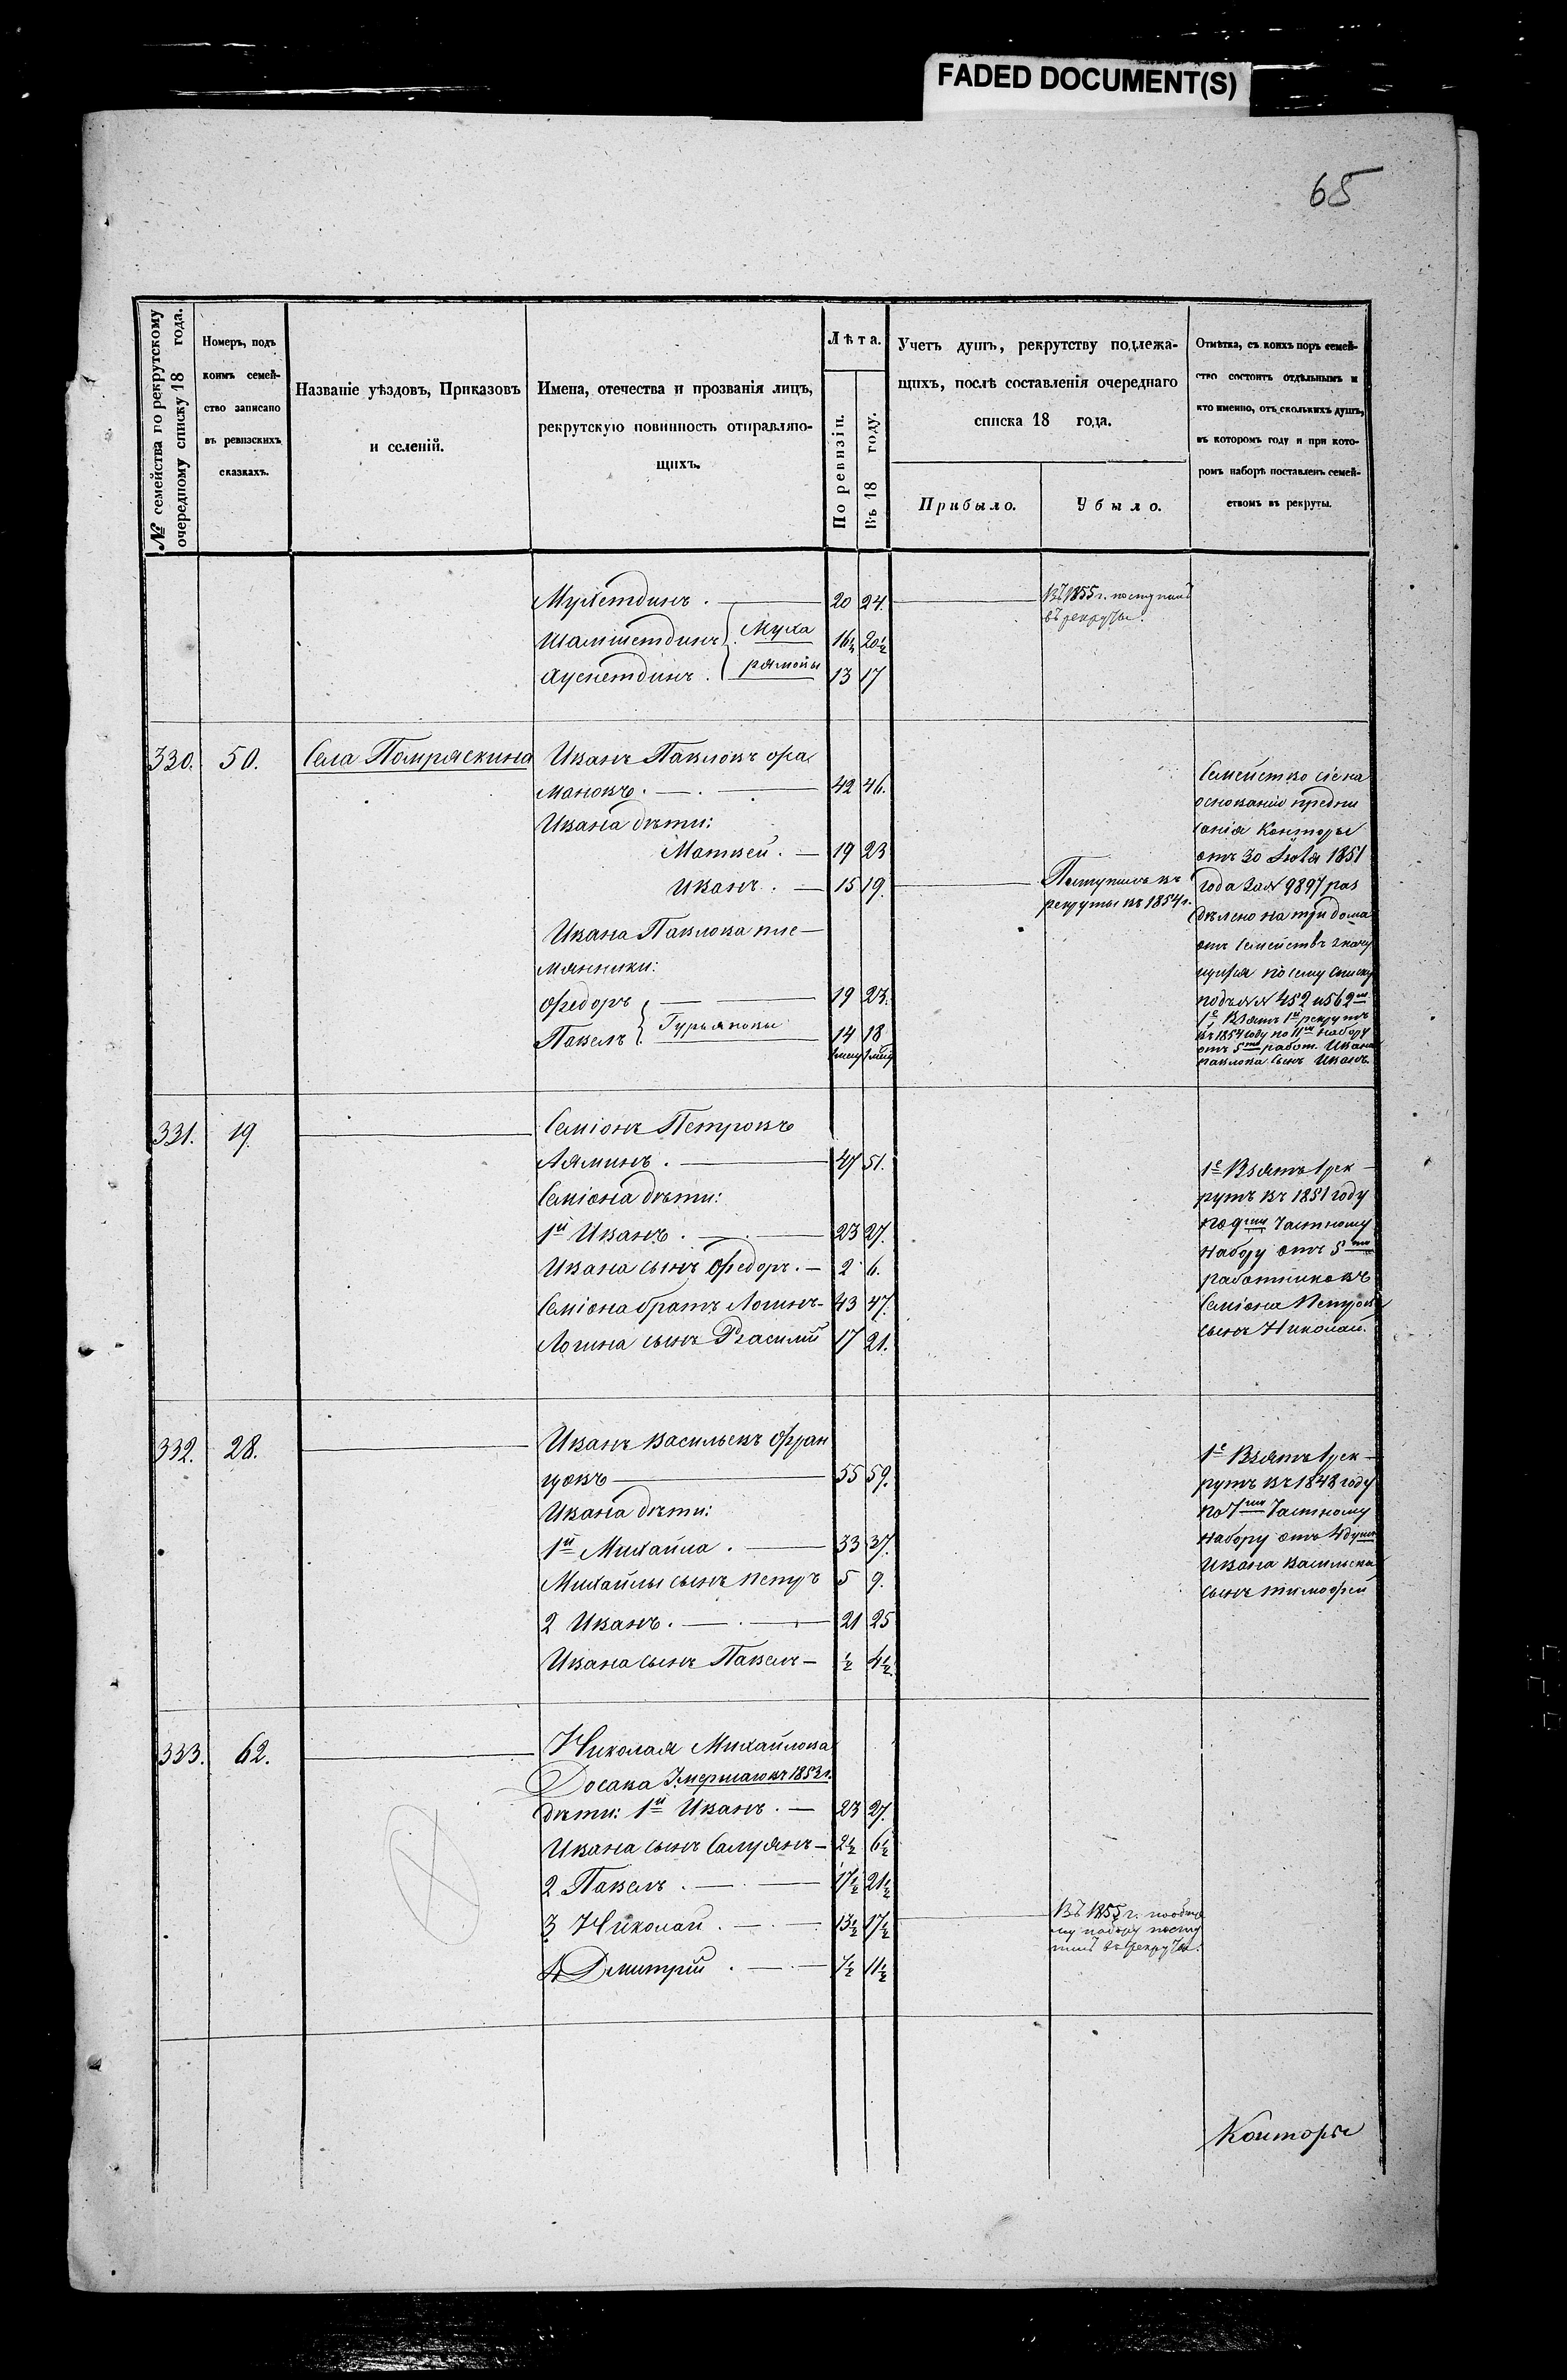 FADED DOCUMENT(S)
65
№ семейства по рекрутскому
очередному списку 18 года.
Номеръ, подъ
коимъ семей-
ство записано
въ ревизскихъ
сказкахъ.
Названіе уѣздовъ, Приказовъ
и селеній.
Имена, отечества и прозванія лицъ,
рекрутскую повинность отправляю-
щихъ.
Лѣта.
По ревизіи.
Въ 18 году.
Учетъ душъ, рекрутству подлежа-
щихъ, послѣ составленія очереднаго
списка 18 года.
Прибыло.
Убыло.
Отмѣтка, съ коихъ поръ семей-
ство состоитъ отдѣльнымъ и
кто именно, отъ сколькихъ душъ,
въ которомъ году и при кото-
ромъ наборѣ поставленъ семей-
ствомъ въ рекруты.
Мухетдинъ. 20 24. Въ 1855 г. поступилъ
въ рекруты.
Шамшетдинъ Муха 16½ 20½
Хуснетдинъ. рямовы 13 17
330. 50. Села Помряскина Иванъ Павловъ Фра
мановъ. 42 46.
Ивана дѣти:
Матвей. 19 23
Иванъ. 15 19. Поступилъ въ
рекруты въ 1854 г.
Ивана Павлова пле-
мянники:
Федоръ 19 23.
Павелъ Гурьяновы 14 18
Семейство сіе на
основаніи предпи
санія Конторы
отъ 30 Іюля 1851
года за № 9897 раз
дѣлено на три дома
отъ семействъ значу
щихся по сему списку
подъ №№ 452 и 562м
1е Взятъ 1й рекрутъ
въ 1854 году по 11му набору
отъ 5ти работ. Ивана
Павлова сынъ Иванъ.
331. 19. Семіонъ Петровъ
Ляминъ. 47 51.
Семіона дѣти:
1й Иванъ. 23 27.
Ивана сынъ Федоръ. 2 6.
Семіона братъ Логинъ 43 47.
Логина сынъ Василій 17 21.
1е Взятъ 1 рек-
рутъ въ 1851 году
по 9му частному
набору отъ 5ти
работниковъ
Семіона Петрова
сынъ Николай.
332. 28. Иванъ Васильевъ Фран
цовъ 55 59.
Ивана дѣти:
1й Михайла. 33 37.
Михайлы сынъ Петръ 5 9.
2 Иванъ. 21 25
Ивана сынъ Павелъ ½ 4½.
1е Взятъ 1 рек-
рутъ въ 1848 году
по 7му частному
набору отъ 4 душъ
Ивана Васильева
сынъ Тимофей
333. 62. Николая Михайлова
умершаго въ 1853 г.
дѣти: 1й Иванъ. 23 27.
Ивана сынъ Салуянъ 2½ 6½
2 Павелъ. 17½ 21½
3 Николай. 13½ 17½ Въ 1855 г.
му набору посту
пилъ въ рекруты.
4 Дмитрій. 7½ 11½
Конторы